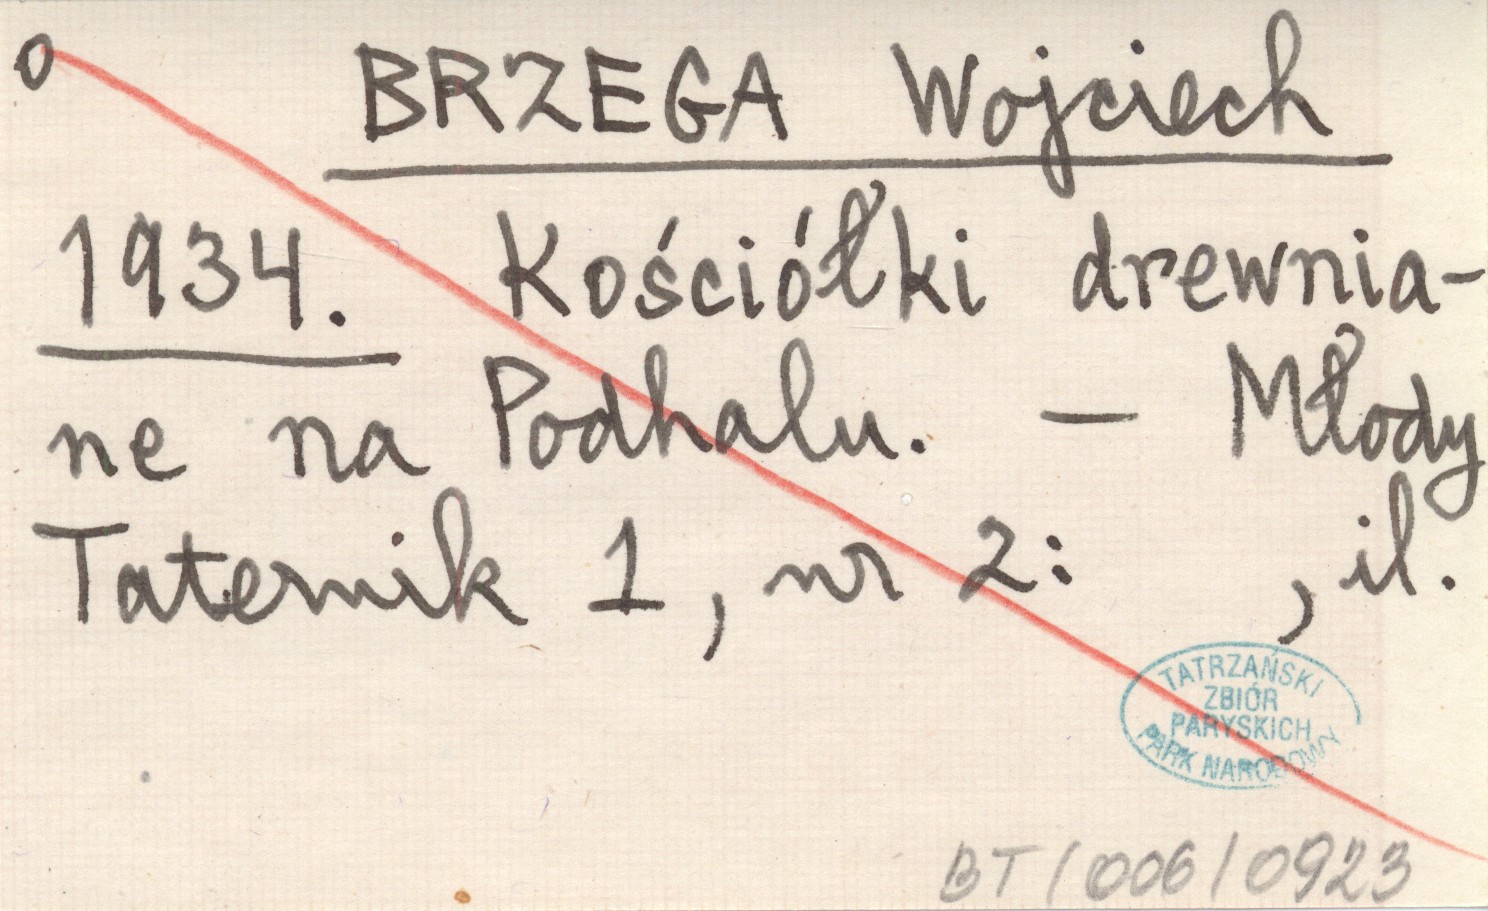 o BRZEGA Wojciech
1934. Kościółki drewnia-
ne na Podhalu. — Młody
Taternik 1, nr 2: , il.
TATRZAŃSKI
ZBIÓR
PARYSKICH
PARK NARODOWY
BT/006/0923